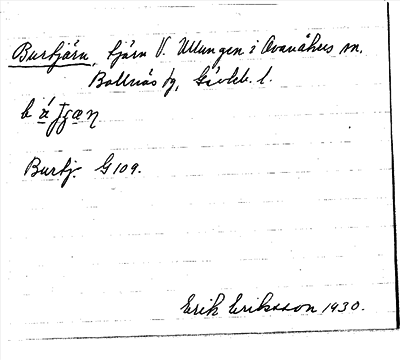 Burtjärn, tjärn V. Ullungen i Ovanåkers sn.
Bollnäs fg, Gävleb. l.
Burtj. G 109.
Erik Eriksson 1930.